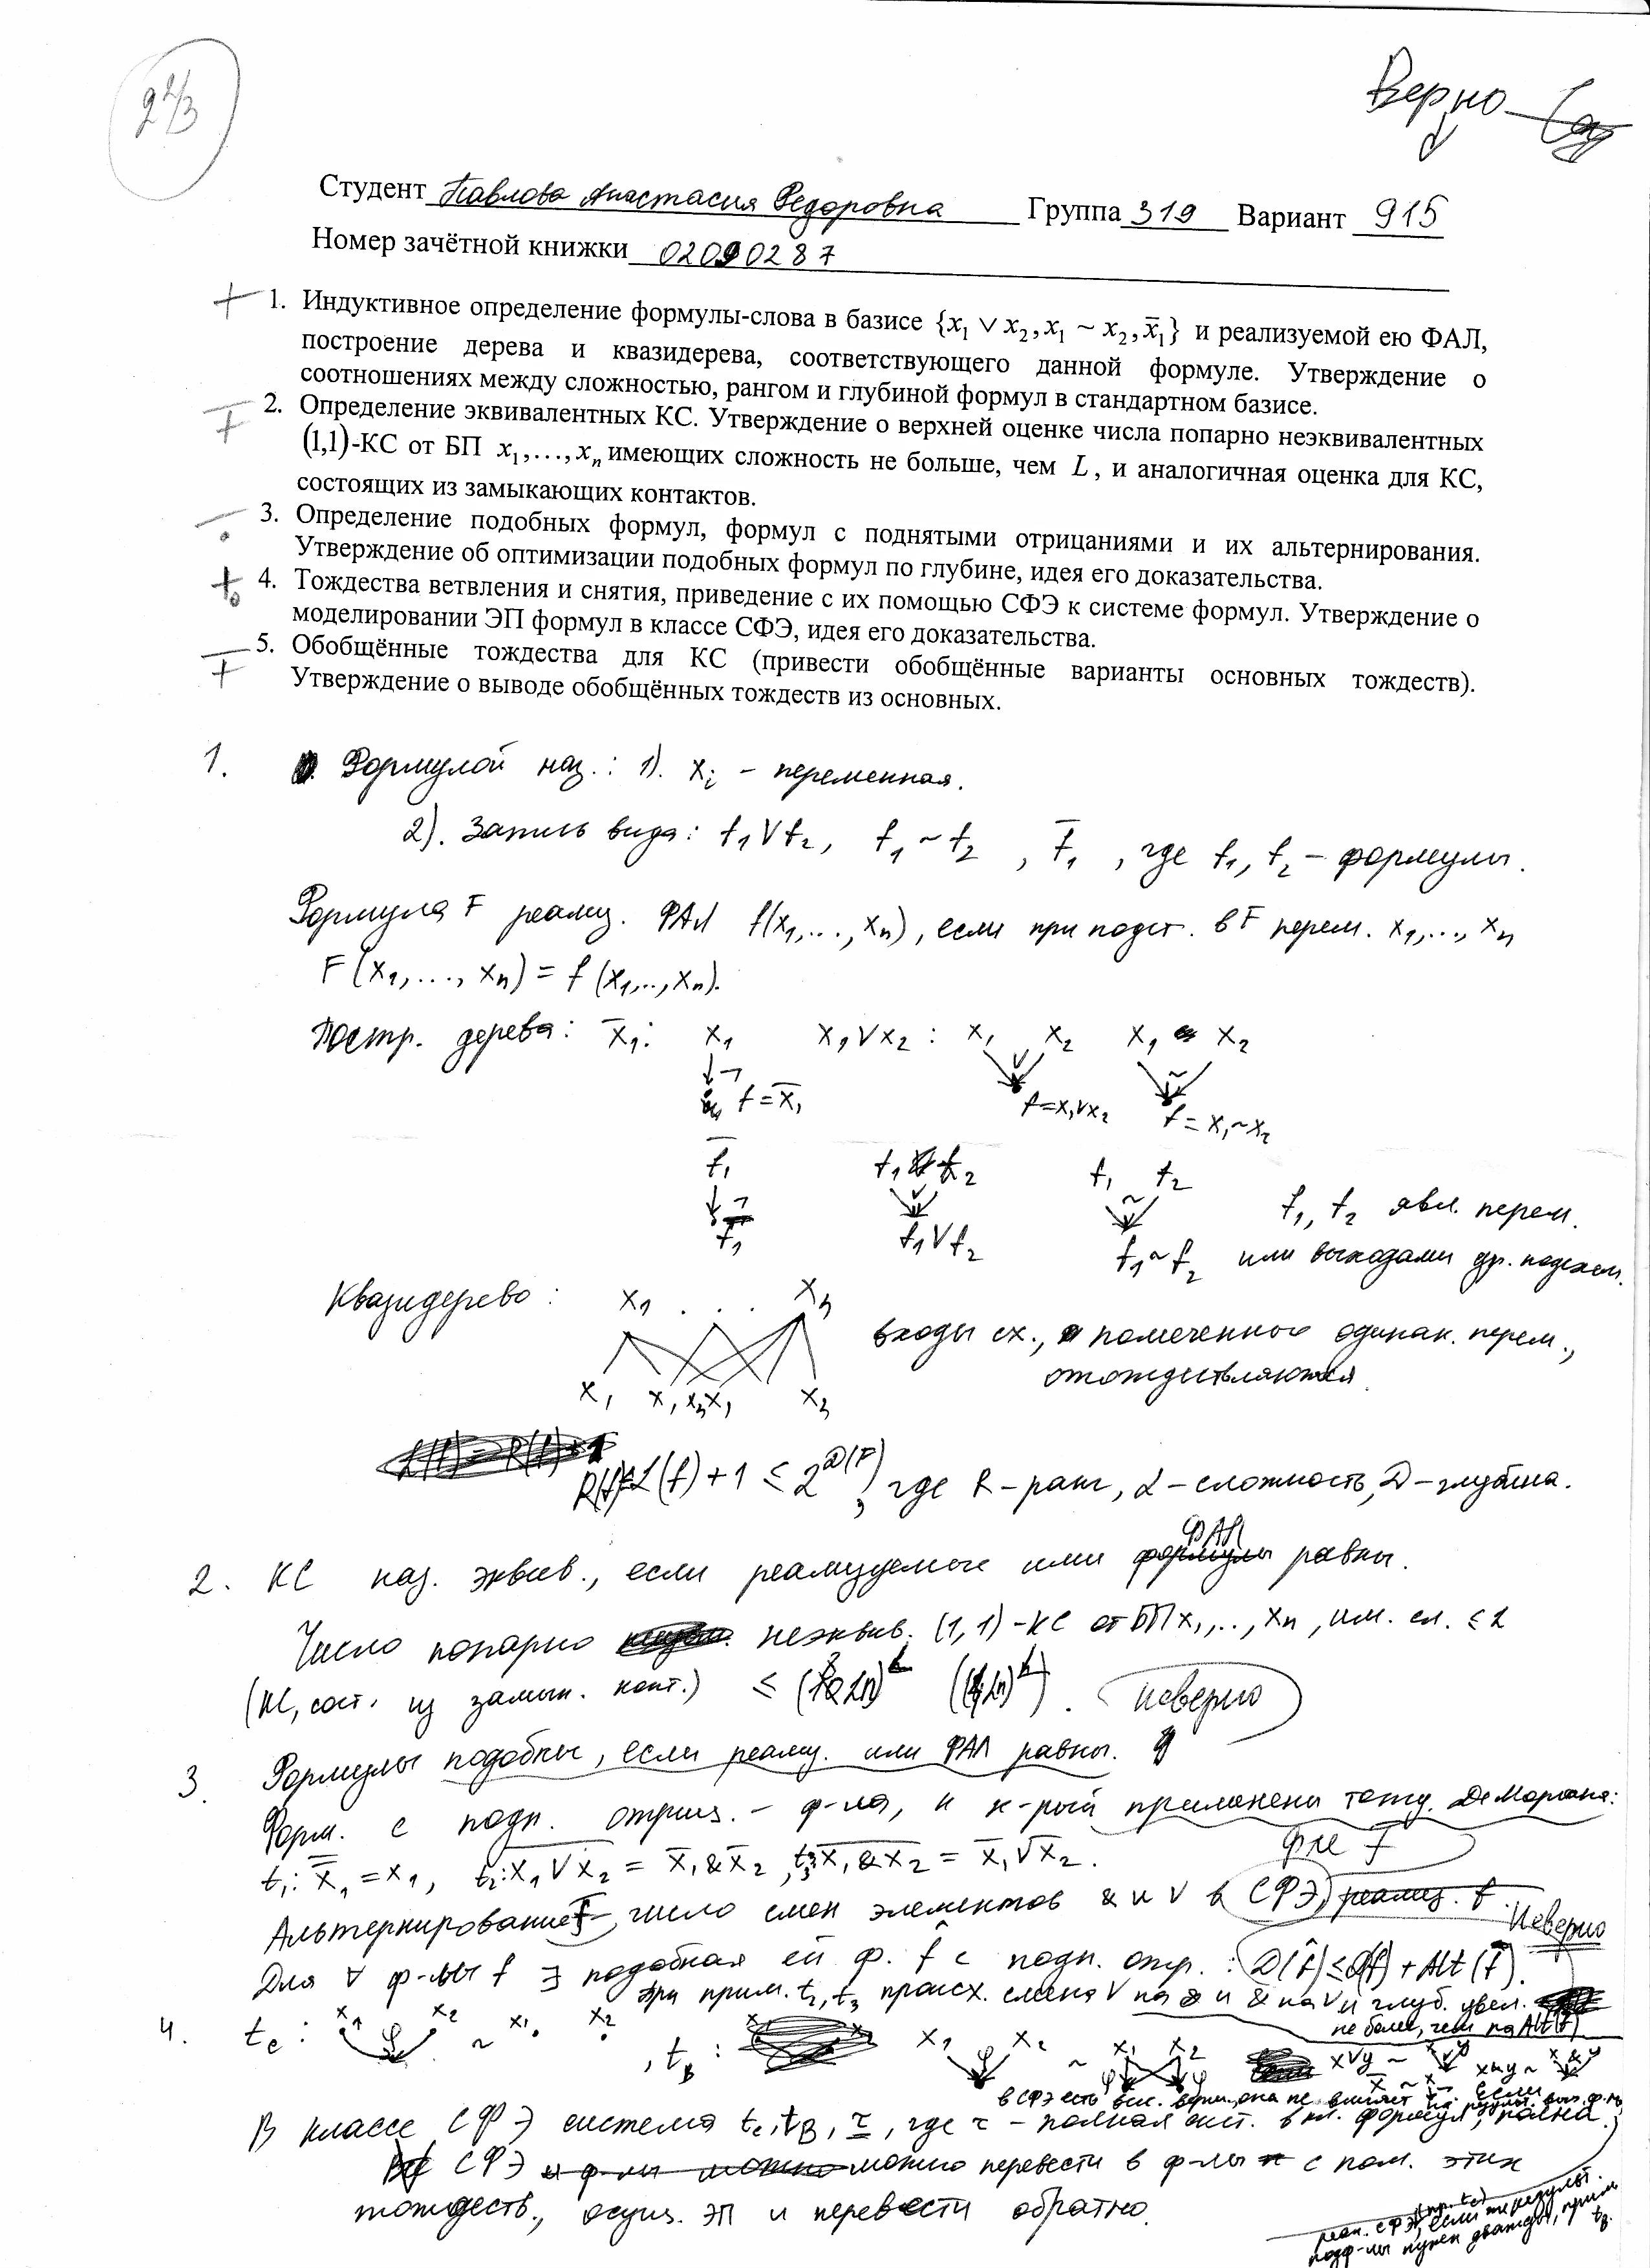 2 2/3
Верно
Студент Павлова Анастасия Федоровна Группа 319 Вариант 915
Номер зачётной книжки 02090287
+ 1. Индуктивное определение формулы-слова в базисе {x₁ ∨ x₂, x₁ ~ x₂, x̄₁} и реализуемой ею ФАЛ,
построение дерева и квазидерева, соответствующего данной формуле. Утверждение о
соотношениях между сложностью, рангом и глубиной формул в стандартном базисе.
∓ 2. Определение эквивалентных КС. Утверждение о верхней оценке числа попарно неэквивалентных
(1,1)-КС от БП x₁,…,xₙ имеющих сложность не больше, чем L, и аналогичная оценка для КС,
состоящих из замыкающих контактов.
3. Определение подобных формул, формул с поднятыми отрицаниями и их альтернирования.
Утверждение об оптимизации подобных формул по глубине, идея его доказательства.
4. Тождества ветвления и снятия, приведение с их помощью СФЭ к системе формул. Утверждение о
моделировании ЭП формул в классе СФЭ, идея его доказательства.
∓ 5. Обобщённые тождества для КС (привести обобщённые варианты основных тождеств).
Утверждение о выводе обобщённых тождеств из основных.
1. Формулой наз.: 1). xᵢ – переменная.
2). Запись вида: f₁ ∨ f₂, f₁ ~ f₂, f̄₁, где f₁, f₂ – формулы.
Формула F реализ. ФАЛ f(x₁,…,xₙ), если при подст. в F перем. x₁,…,xₙ
F(x₁,…,xₙ) = f(x₁,..,xₙ).
Постр. дерева: x̄₁: x₁ x₁ ∨ x₂: x₁ x₂ x₁ x₂
¬ ∨ ~
f = x̄₁ f = x₁ ∨ x₂ f = x₁ ~ x₂
f₁ f₂ f₁, f₂ явл. перем.
f₁ ∨ f₂ f₁ ~ f₂ или выходами др. подсхем.
Квазидерево: x₁ . . . xₙ
входы сх., помеченные одинак. перем.,
отождествляются.
L(f) + 1 ≤ 2^D(F), где R – ранг, L – сложность, D – глубина.
2. КС наз. эквив., если реализуемые ими ФАЛ равны.
Число попарно неэквив. (1,1)-КС от БП x₁,..,xₙ, им. сл. ≤ L
(КС, сост. из замык. конт.) ≤ неверно
3. Формулы подобны, если реализ. ими ФАЛ равны.
Форм. с подн. отриц. – ф-ла, к к-рой применены тожд. ДеМоргана:
t₁: x̿₁ = x₁, t₂: x₁ ∨ x₂ = x̄₁ & x̄₂, t₃: x₁ & x₂ = x̄₁ ∨ x̄₂.
Альтернирование – число смен элементов & и ∨ в СФЭ, реализ. f.
Неверно
Для ∀ ф-лы f ∃ подобная ей ф. f̂ с подн. отр.: D(f̂) ≤ + Alt(f).
При прим. t₂, t₃ происх. смена ∨ на & и & на ∨ и глуб. увел.
не более, чем на Alt(f)
4. t_c: x₁ x₂ φ ~ x₁ x₂, t_в: x₁ x₂ φ ~ x₁ x₂ φ φ
В классе СФЭ система t_c, t_в, τ, где τ – полная сист. в кл. формул, полна.
СФЭ можно перевести в ф-лы с пом. этих
тождеств, осущ. ЭП и перевести обратно.